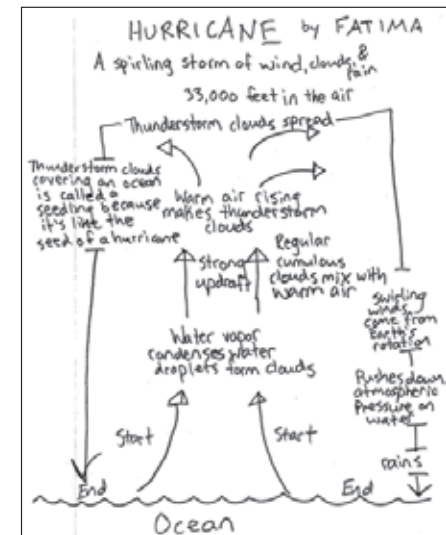 HURRICANE by FATIMA
A spirling storm of wind, clouds, & rain
33,000 feet in the air
Thunderstorm clouds spread
Thunderstorm clouds
covering an ocean
is called a
seedling because
it's like the
seed of a hurricane
Warm air rising
makes thunderstorm
clouds
strong
updraft
Regular
cumulous
clouds mix with
warm air
Swirling
winds
come from
Earth's
rotation
Water vapor
condenses water
droplets form clouds
Pushes down
atmospheric
pressure on
water
Start
Start
rains
End
End
Ocean